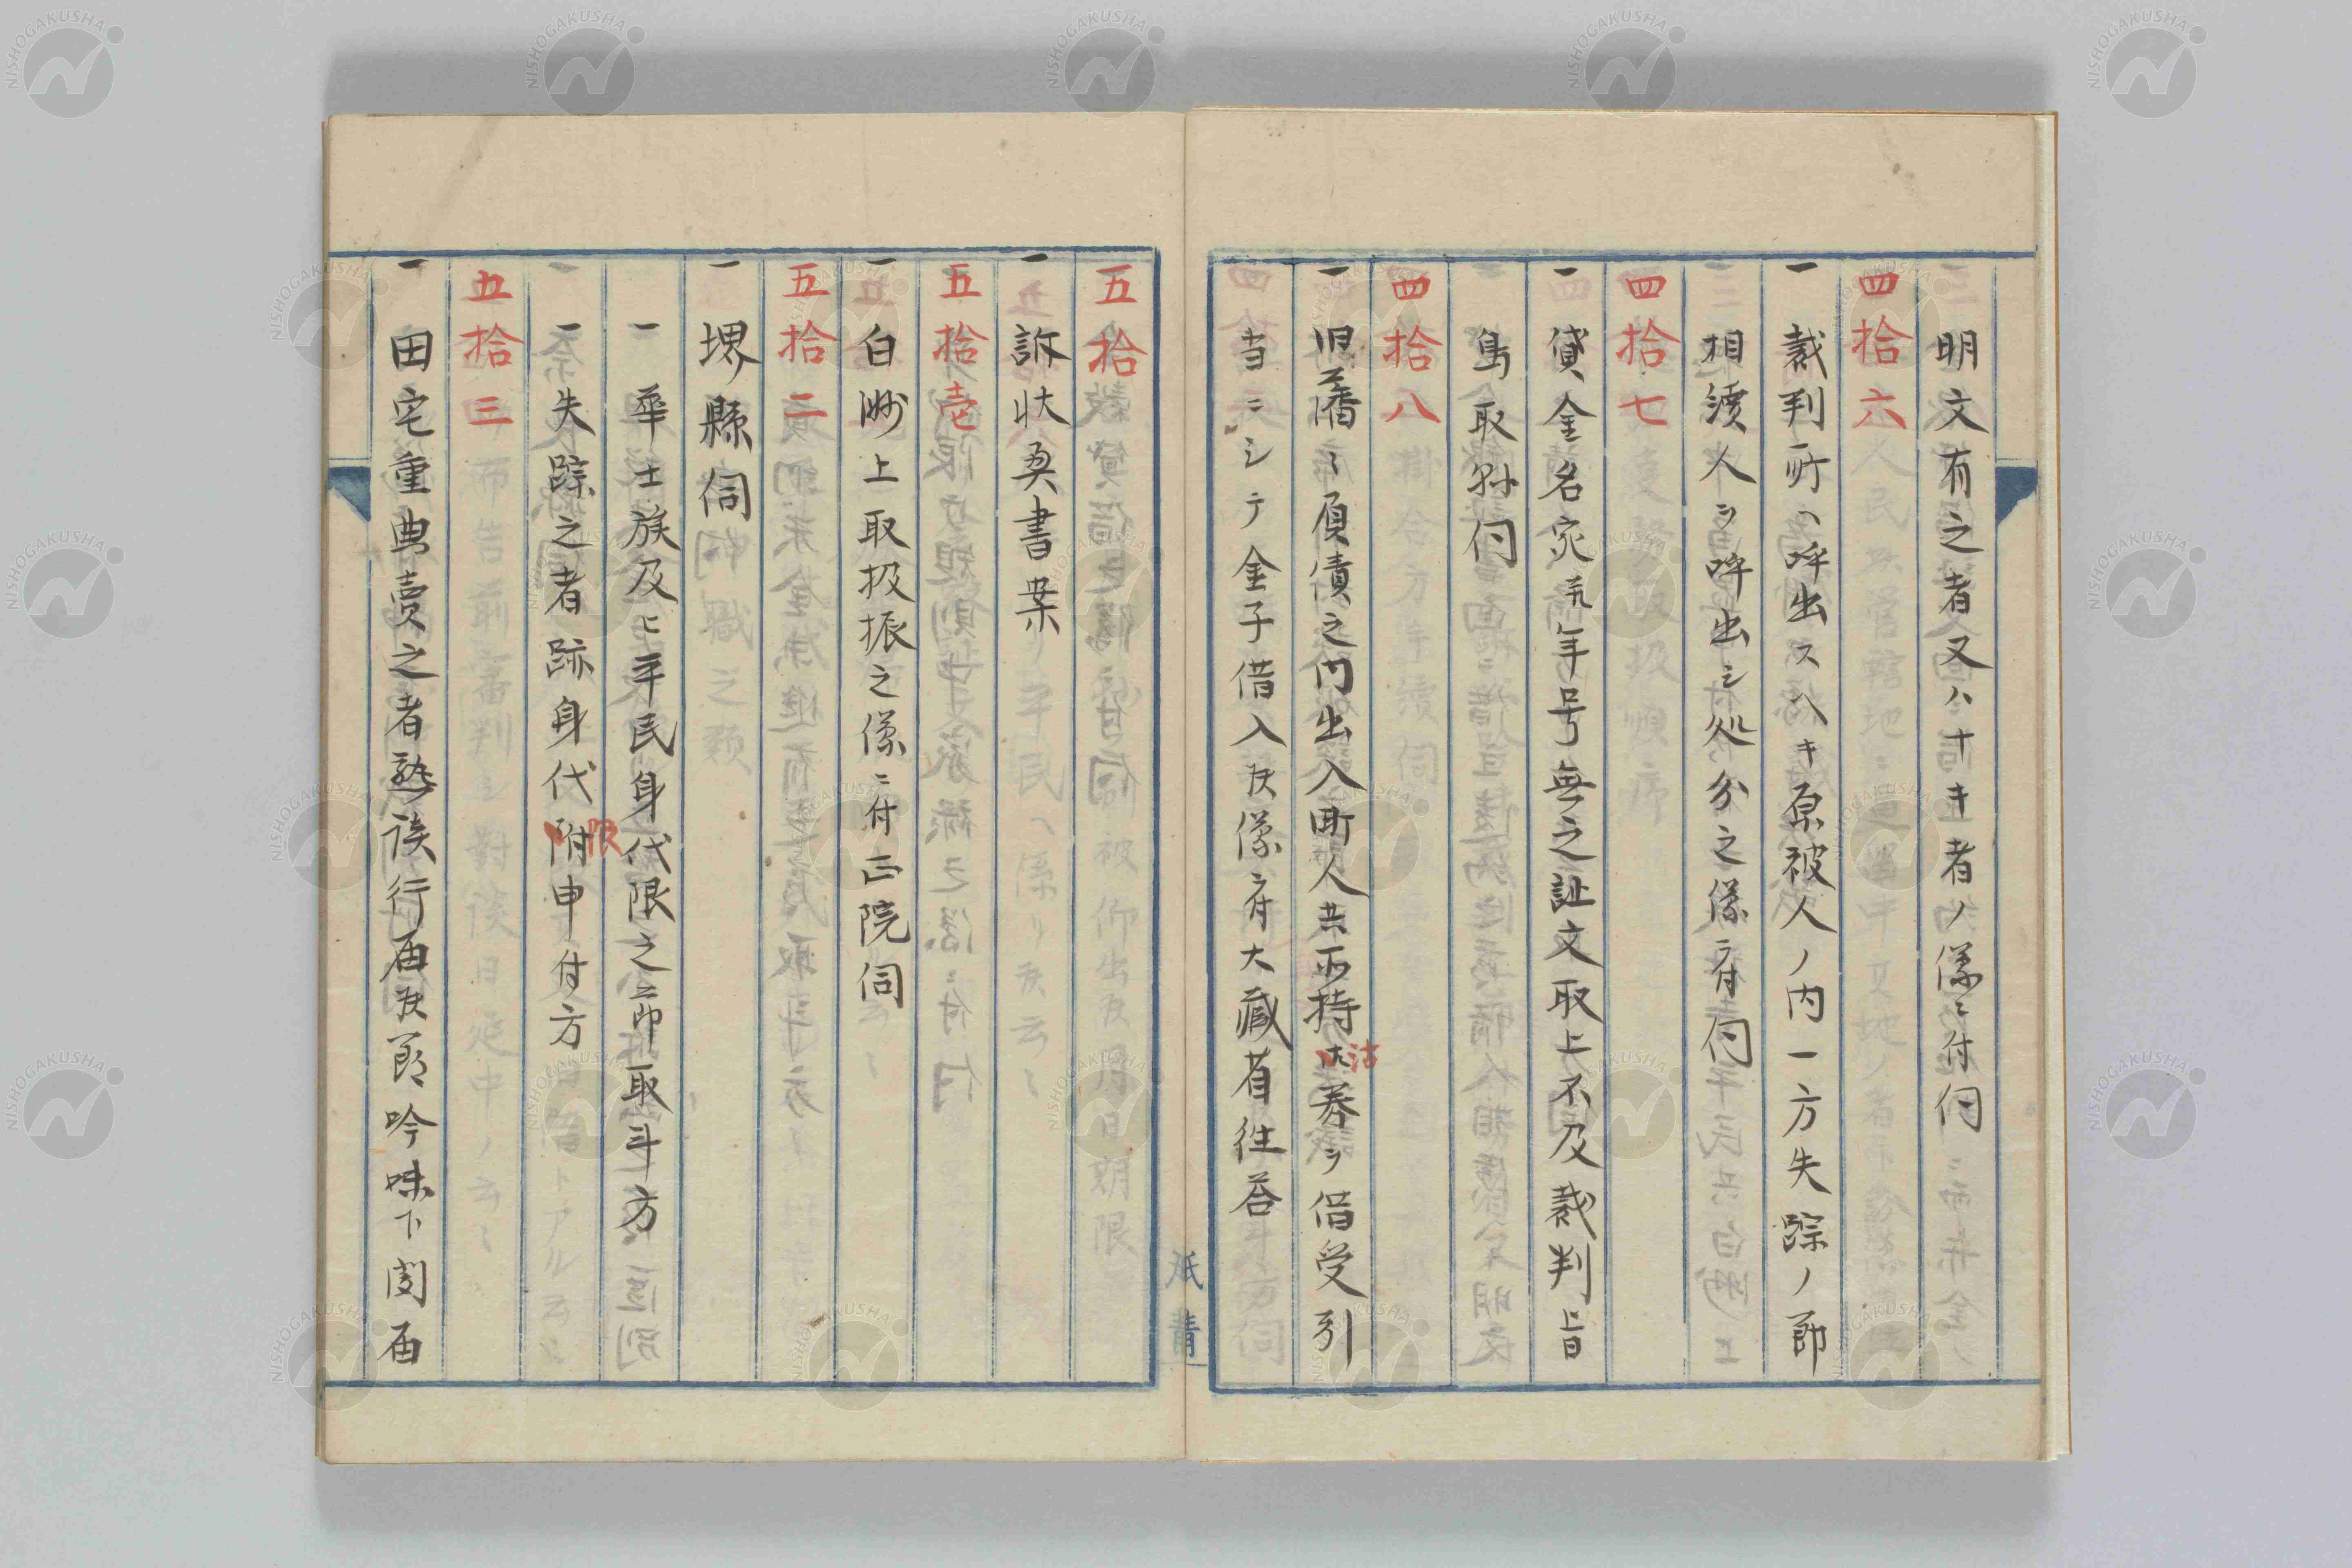 明文有之者又ハナキ者ノ儀ニ付伺
四拾六
一 裁判所ヘ呼出スヘキ原被人ノ内一方失踪ノ節
相續人ヲ呼出シ処分之儀ニ付伺
四拾七
一 貸金名宛年号無之証文取上不及裁判旨
鳥取縣伺
四拾八
一 旧藩々負債之内出入町人共所持沽券ヲ借受引
当ニシテ金子借入候儀ニ付大蔵省往答
五拾
一 訴状奥書案
五拾壱
一 白洲上取扱振之儀ニ付正院伺
五拾二
一 堺縣伺
一 華士族及ヒ平民身代限之節取斗方
一 失踪之者跡身代限申付方
五拾三
一 田宅重典賣之者熟談行届候節吟味下聞届